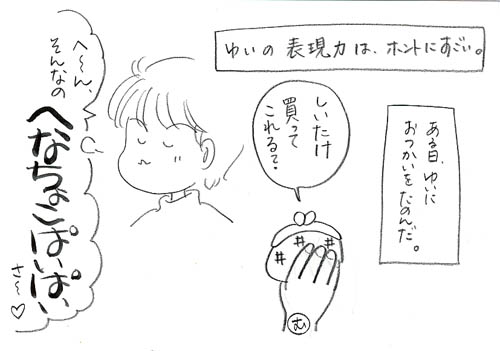 ゆいの 表現力は、ホントにすごい。
ある日、ゆいに
おつかいをたのんだ。
しいたけ
買って
これるて?
む
へ〜ん、
そんなの
へなちょこぱいぱい
さ〜♡